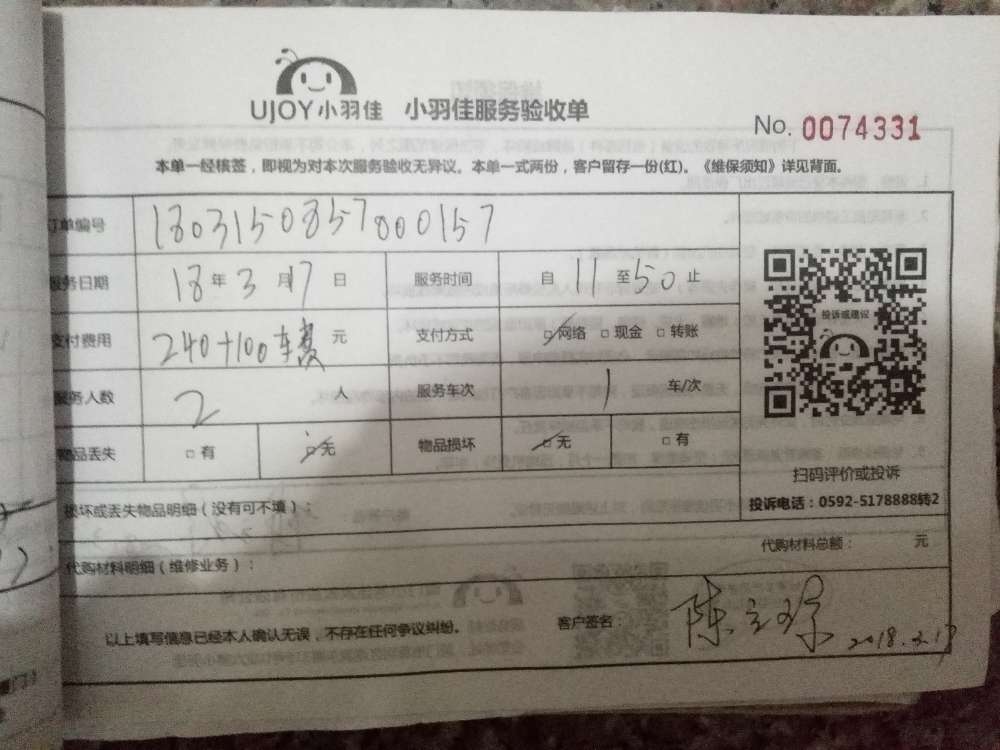 UJOY小羽佳 小羽佳服务验收单
No. 0074331
本单一经核签，即视为对本次服务验收无异议。本单一式两份，客户留存一份(红)。《维保须知》详见背面。
订单编号 1803150857000157
服务日期 18年3月17日 服务时间 自11至50止
支付费用 240+100车费 元 支付方式 ☑网络 □现金 □转账
服务人数 2 人 服务车次 1 车/次
物品丢失 □有 ☑无 物品损坏 ☑无 □有
投诉或建议
扫码评价或投诉
投诉电话：0592-5178888转2
损坏或丢失物品明细（没有可不填）：
代购材料明细（维修业务）：
代购材料总额： 元
以上填写信息已经本人确认无误，不存在任何争议纠纷。 客户签名：
2018.3.17